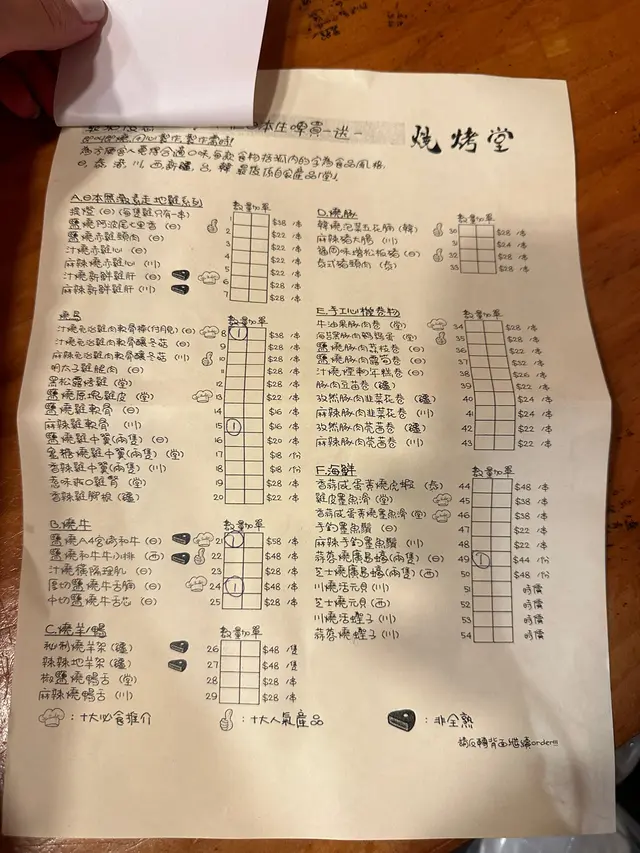 日本生啤買一送一
燒烤堂
為方便客人選擇合適口味,每款食物括弧內的字為食品風格,
日, 泰, 港, 川, 西, 新疆, 台, 韓 最後 堂
A.日本 走地雞系列
數量 加單
提燈 (日) (每隻雞只有一串)
1 $38 /串
鹽燒阿波尾 (日)
2 $22 /串
鹽燒赤雞頸肉 (日)
3 $22 /串
汁燒赤雞心 (日)
4 $22 /串
麻辣燒赤雞心 (川)
5 $22 /串
汁燒新鮮雞肝 (日)
6 $22 /串
麻辣新鮮雞肝 (川)
7 $22 /串
燒鳥
數量 加單
汁燒免治雞肉軟骨棒 (日)
8 1 $38 /串
汁燒免治雞肉軟骨釀冬菇 (日)
9 $28 /串
麻辣免治雞肉軟骨釀冬菇 (川)
10 $28 /串
明太子雞腿肉 (日)
11 $28 /串
黑松露烤雞 (堂)
12 $28 /串
鹽燒原塊雞皮 (堂)
13 $28 /串
鹽燒雞軟骨 (日)
14 $16 /串
麻辣雞軟骨 (川)
15 1 $16 /串
鹽燒雞中翼(兩隻) (日)
16 $20 /串
金糖燒雞中翼(兩隻) (堂)
17 $18 /份
香辣雞中翼(兩隻) (川)
18 $18 /份
惹味爽口雞腎 (堂)
19 $28 /串
香辣雞腳板 (疆)
20 $22 /串
B.燒牛
數量 加單
鹽燒A4宮崎和牛 (日)
21 1 $58 /串
鹽燒和牛牛小排 (西)
22 $48 /串
汁燒橫隔裡肌 (日)
23 $28 /串
厚切鹽燒牛舌腩 (日)
24 1 $48 /串
中切鹽燒牛舌芯 (日)
25 $28 /串
C.燒羊/鴨
數量 加單
秘制燒羊架 (疆)
26 $48 /隻
辣辣地羊架 (疆)
27 $48 /隻
椒鹽燒鴨舌 (堂)
28 $28 /串
麻辣燒鴨舌 (川)
29 $28 /串
D.燒豚
數量 加單
韓燒泡菜五花腩 (韓)
30 $28 /串
麻辣豬大腸 (川)
31 $24 /串
松板豬 (日)
32 $28 /串
泰式豬頸肉 (泰)
33 $28 /串
E.手工心機卷物
數量 加單
牛油果豚肉卷 (堂)
34 $28 /串
豚肉鵪鶉蛋 (堂)
35 $28 /串
鹽燒豚肉蒜粒卷 (日)
36 $22 /串
鹽燒豚肉露筍卷 (日)
37 $32 /串
汁燒煙靭年糕卷 (日)
38 $26 /串
豚肉豆苗卷 (疆)
39 $22 /串
孜然豚肉韭菜花卷 (疆)
40 $24 /串
麻辣豚肉韭菜花卷 (川)
41 $24 /串
孜然豚肉芫茜卷 (疆)
42 $28 /串
麻辣豚肉芫茜卷 (川)
43 $22 /串
F.海鮮
數量 加單
香蒜咸蛋黃燒虎蝦 (泰)
44 $48 /串
雞皮墨魚滑 (堂)
45 $38 /串
香蒜咸蛋黃燒墨魚滑 (堂)
46 $38 /串
手釣墨魚鬚 (日)
47 $22 /串
麻辣手釣墨魚鬚 (川)
48 $22 /串
蒜蓉燒廣島蠔(兩隻) (日)
49 1 $44 /份
芝士燒廣島蠔(兩隻) (西)
50 $48 /份
川燒活元貝 (川)
51 時價
芝士燒元貝 (西)
52 時價
川燒活蟶子 (川)
53 時價
蒜蓉燒蟶子 (川)
54 時價
:十大必食推介
:十大人氣產品
:非全熟
請反轉背面繼續order!!!